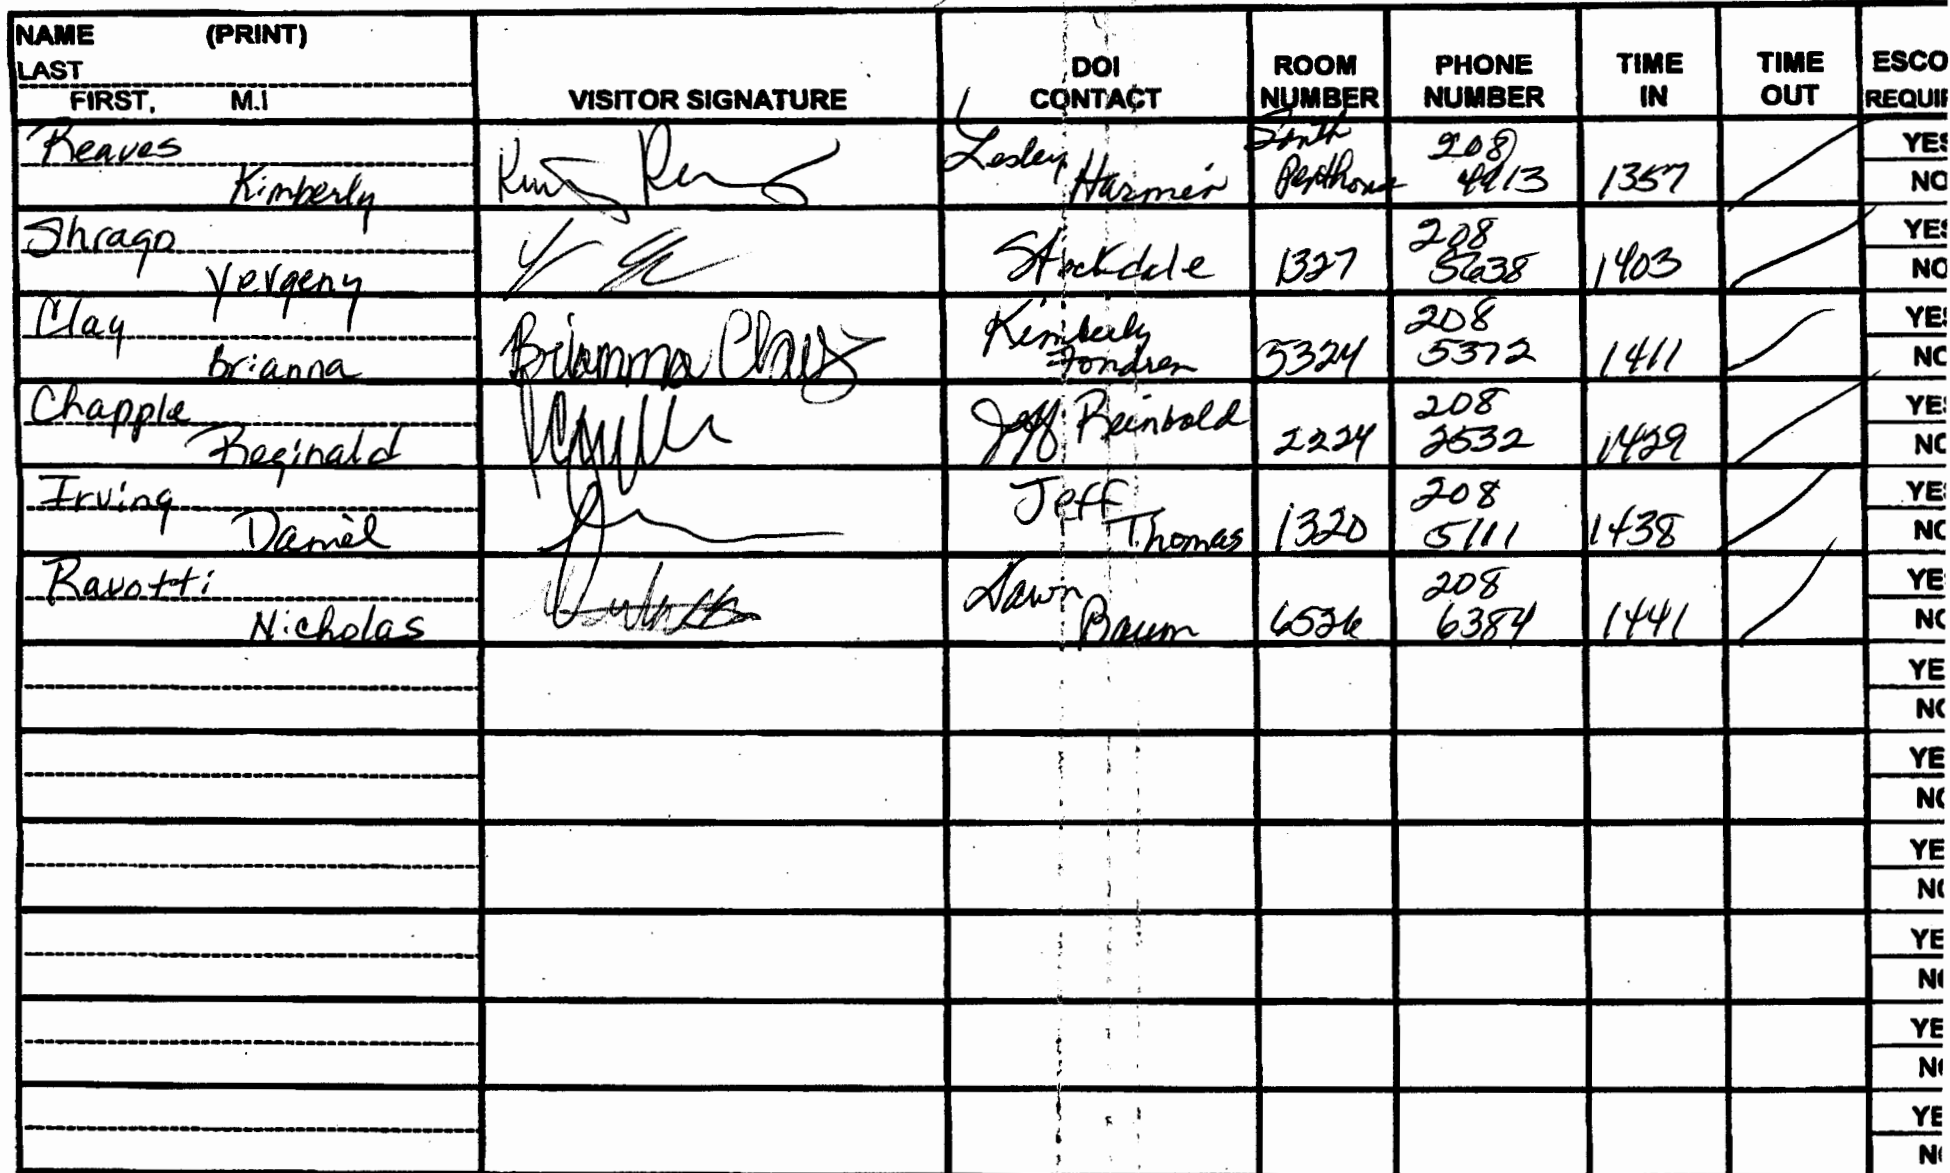 NAME (PRINT)
LAST
FIRST, M.I
VISITOR SIGNATURE
DOI
CONTACT
ROOM
NUMBER
PHONE
NUMBER
TIME
IN
TIME
OUT
ESCO
REQUIR
Reaves
Kimberly
Lesley
Harmer
Penthouse
208
4913
1357
YES
NO
Shrago
Yevgeny
Stockdale
1327
208
5638
1403
YES
NO
Clay
Brianna
Brianna Clay
Kimberly
Fondren
5324
208
5372
1411
YES
NO
Chapple
Reginald
Jeff Reinbold
2224
208
2532
1429
YES
NO
Irving
Daniel
Jeff
Thomas
1320
208
5111
1438
YE
NO
Ravotti
Nicholas
Dawn
Baum
6526
208
6384
1441
YE
NO
YE
NO
YE
NO
YE
NO
YE
NO
YE
NO
YE
NO